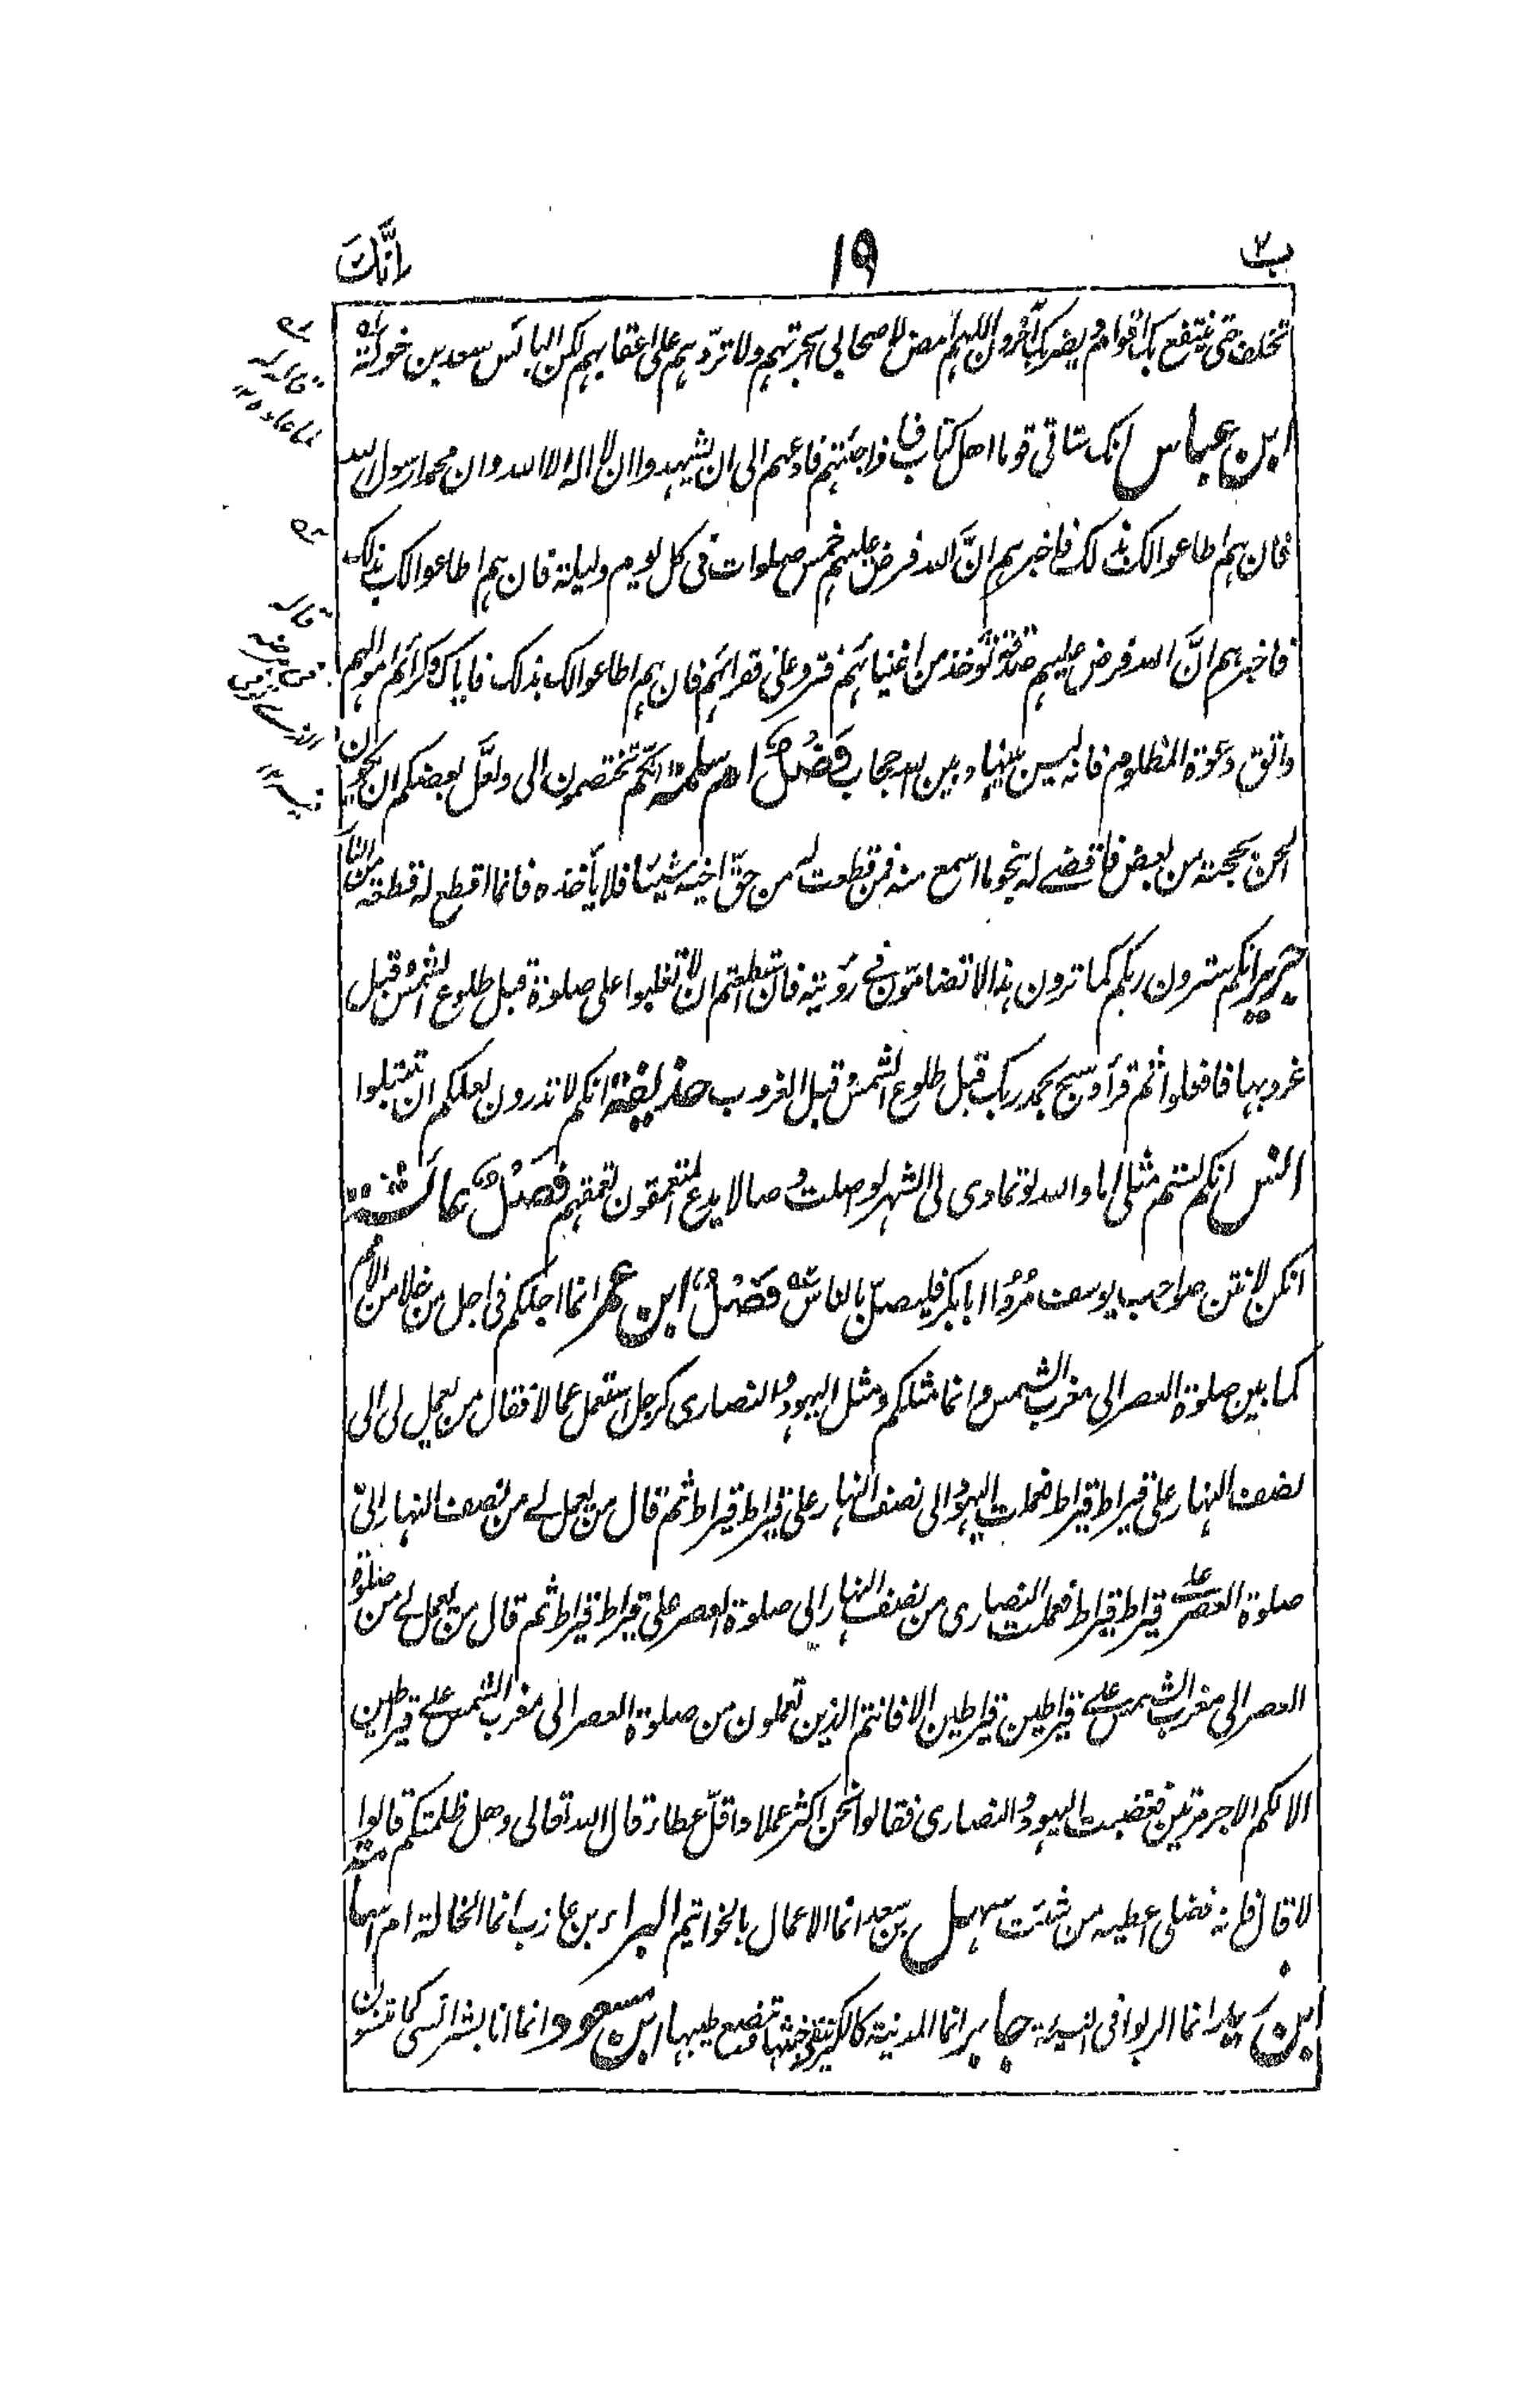 ب ٢ ١٩ اِنَّكَ
تخلف حتى ينتفع بك اقوام ويضر بك آخرون اللهم امض لاصحابي هجرتهم ولا تردّهم على اعقابهم لكن البائس سعد بن خولة
ابن عباس انك ستاتي قوما اهل كتاب فاذا جئتهم فادعهم الى ان يشهدوا ان لا اله الا الله وان محمدا رسول الله
فان هم اطاعوا لك بذلك فاخبرهم انَّ الله فرض عليهم خمس صلوات في كل يوم وليلة فان هم اطاعوا لك بذلك
فاخبرهم انَّ الله فرض عليهم صدقة تؤخذ من اغنيائهم فترد على فقرائهم فان هم اطاعوا لك بذلك فاياك وكرائم اموالهم
واتق دعوة المظلوم فانه ليس بينها وبين الله حجاب فَصْلٌ ام سلمة انّكم تختصمون الى ولعلّ بعضكم ان يكون
الحن بحجته من بعض فاقضي له بنحو ما اسمع منه فمن قطعت له من حقّ اخيه شيئا فلا يأخذه فانما اقطع له قطعة من النار
جرير انكم سترون ربكم كما ترون هذا لا تضامّون في رؤيته فان استطعتم ان لا تغلبوا على صلوة قبل طلوع الشمس وقبل
غروبها فافعلوا ثم قرأ وسبح بحمد ربك قبل طلوع الشمس وقبل الغروب حذيفة انكم لا تدرون لعلكم ان تبتلوا
انس انكم لستم مثلي اما والله لو تمادى لي الشهر لواصلت وصالا يدع المتعمقون تعمقهم فَصْلٌ عائشة
انكن لانتن صواحب يوسف مُرُوا ابا بكر فليصلّ بالناس فَصْلٌ ابن عمر انما اجلكم في اجل من خلا من الامم
كما بين صلوة العصر الى مغرب الشمس وانما مثلكم ومثل اليهود والنصارى كرجل استعمل عمالا فقال من يعمل لي الى
نصف النهار على قيراط قيراط فعملت اليهود الى نصف النهار على قيراط قيراط ثم قال من يعمل لي من نصف النهار الى
صلوة العصر على قيراط قيراط فعملت النصارى من نصف النهار الى صلوة العصر على قيراط قيراط ثم قال من يعمل لي من صلوة
العصر الى مغرب الشمس على قيراطين قيراطين الا فانتم الذين تعملون من صلوة العصر الى مغرب الشمس على قيراطين
الا لكم الاجر مرتين فغضبت اليهود والنصارى فقالوا نحن اكثر عملا واقلّ عطاء قال الله تعالى وهل ظلمتكم قالوا
لا قال فانه فضلي اعطيه من شئت سهل بن سعد انما الاعمال بالخواتيم البراء بن عازب انما الخالة ام اسامة
ابن زيد انما الربوا في النسيئة جابر انما المدينة كالكير تنفي خبثها وتنصع طيبها ابن مسعود انما انا بشر انسى كما تنسون